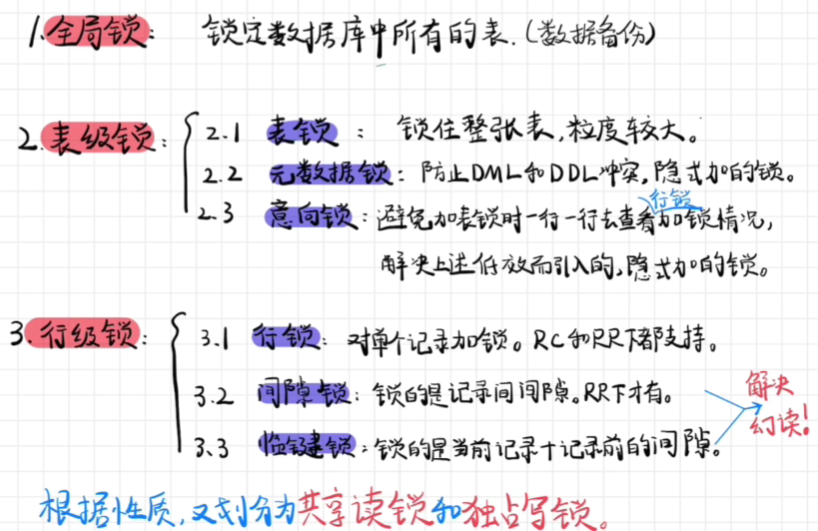 1. 全局锁: 锁定数据库中所有的表.(数据备份)
2. 表级锁:
2.1 表锁: 锁住整张表,粒度较大。
2.2 元数据锁: 防止DML和DDL冲突,隐式加的锁。
2.3 意向锁: 避免加表锁时一行一行去查看行锁加锁情况,
解决上述低效而引入的,隐式加的锁。
3. 行级锁:
3.1 行锁: 对单个记录加锁。RC和RR下都支持。
3.2 间隙锁: 锁的是记录间间隙。RR下才有。
3.3 临键锁: 锁的是当前记录+记录前的间隙。
解决
幻读!
根据性质,又划分为共享读锁和独占写锁。